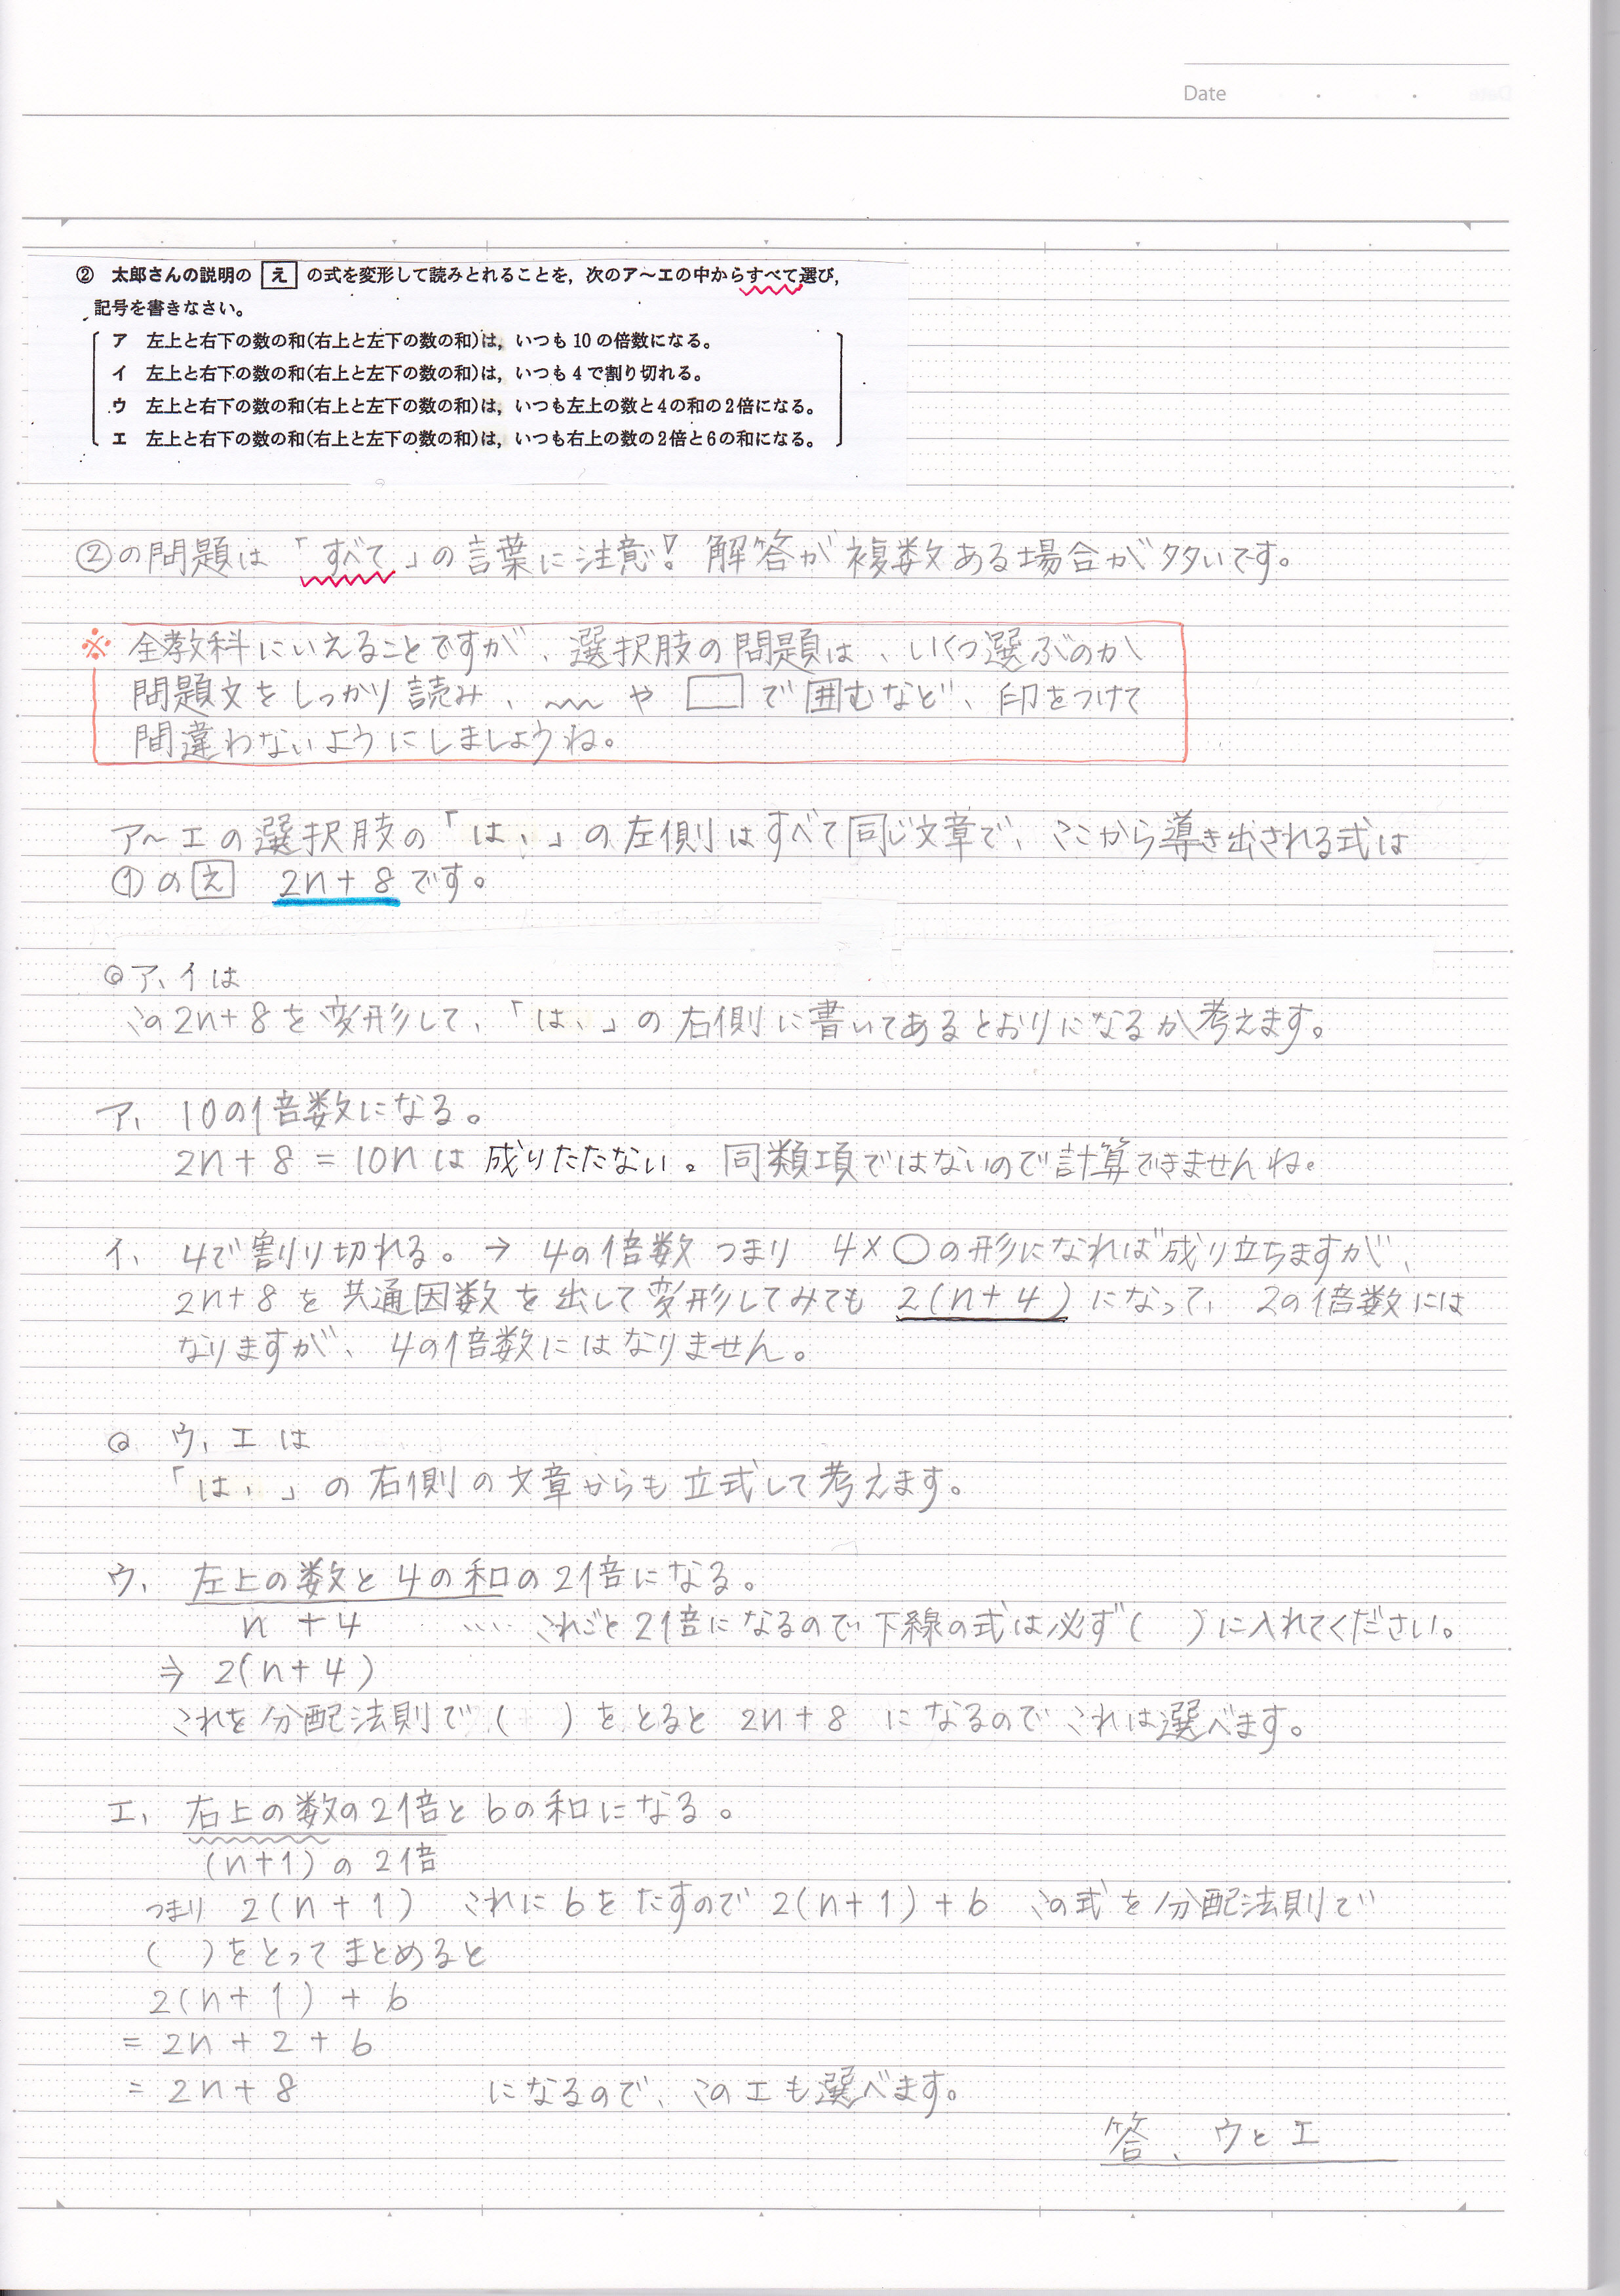 Date
② 太郎さんの説明の え の式を変形して読みとれることを，次のア～エの中からすべて選び，
記号を書きなさい。
ア 左上と右下の数の和(右上と左下の数の和)は，いつも 10 の倍数になる。
イ 左上と右下の数の和(右上と左下の数の和)は，いつも 4 で割り切れる。
ウ 左上と右下の数の和(右上と左下の数の和)は，いつも左上の数と4の和の2倍になる。
エ 左上と右下の数の和(右上と左下の数の和)は，いつも右上の数の2倍と6の和になる。
②の問題は「すべて」の言葉に注意! 解答が複数ある場合が多いです。
※ 全教科にいえることですが、選択肢の問題は、いくつ選ぶのか
問題文をしっかり読み、〰 や □ で囲むなど、印をつけて
間違わないようにしましょうね。
ア～エの選択肢の「は、」の左側はすべて同じ文章で、ここから導き出される式は
①の え 2n+8です。
◎ア、イは
この2n+8を変形して、「は、」の右側に書いてあるとおりになるか考えます。
ア、10の倍数になる。
2n+8=10nは成りたたない。同類項ではないので計算できませんね。
イ、4で割り切れる。→ 4の倍数 つまり 4×○の形になれば成り立ちますが、
2n+8を共通因数を出して変形してみても 2(n+4)になって、2の倍数には
なりますが、4の倍数にはなりません。
◎ ウ、エは
「は、」の右側の文章からも立式して考えます。
ウ、左上の数と4の和の2倍になる。
n +4 ‥‥ これごと2倍になるので下線の式は必ず( )に入れてください。
⇒ 2(n+4)
これを分配法則で( )をとると 2n+8 になるのでこれは選べます。
エ、右上の数の2倍と6の和になる。
(n+1)の2倍
つまり 2(n+1) これに6をたすので 2(n+1)+6 この式を分配法則で
( )をとってまとめると
2(n+1)+6
=2n+2+6
=2n+8 になるので、このエも選べます。
答、ウとエ